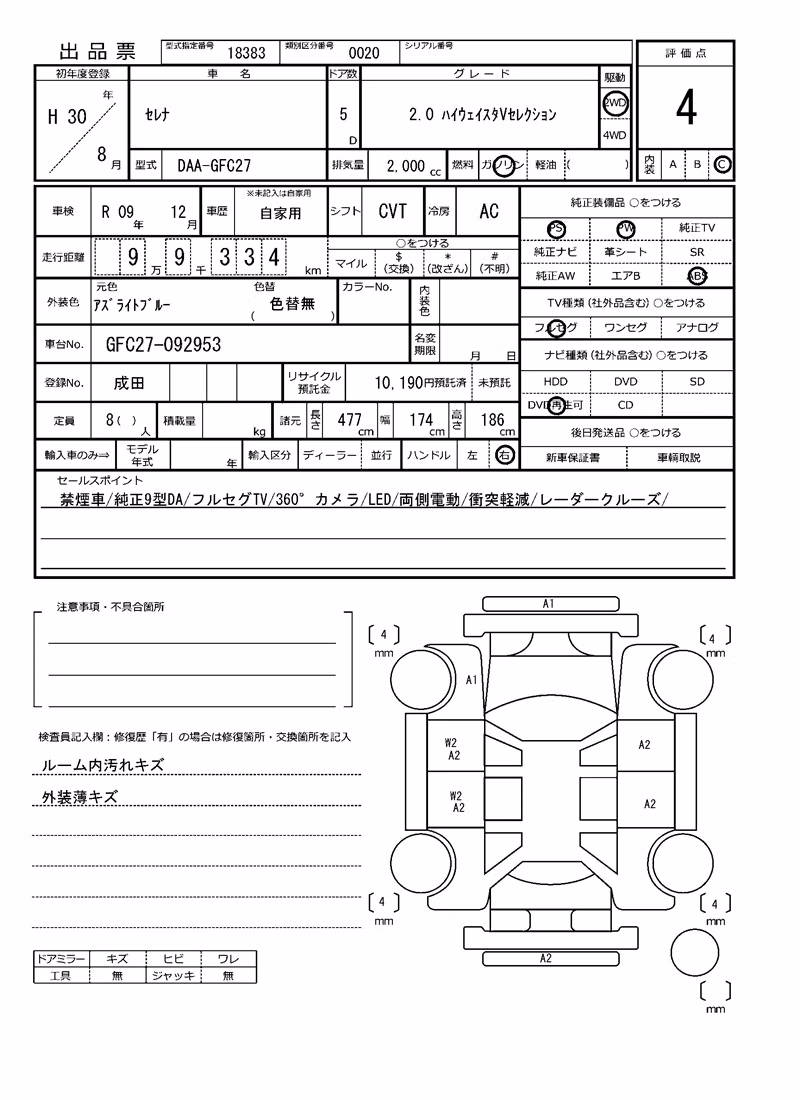 出品票 型式指定番号 18383 類別区分番号 0020 シリアル番号
評価点
4
内装 A B C
初年度登録 車名 ドア数 グレード 駆動
H 30 年 8 月
セレナ
5 D
2.0 ハイウェイスタVセレクション
2WD
4WD
型式 DAA-GFC27 排気量 2,000 cc 燃料 ガソリン 軽油 ( )
車検 R 09 年 12 月 車歴 ※未記入は自家用 自家用 シフト CVT 冷房 AC
走行距離 9 万 9 千 3 3 4 km
○をつける
マイル $ (交換) * (改ざん) # (不明)
外装色 元色 アズライトブルー 色替 ( 色替無 ) カラーNo. 内装色
車台No. GFC27-092953 名変期限 月 日
登録No. 成田 リサイクル預託金 10,190円預託済 未預託
定員 8( ) 人 積載量 kg 諸元 長さ 477 cm 幅 174 cm 高さ 186 cm
輸入車のみ⇒ モデル年式 年 輸入区分 ディーラー 並行 ハンドル 左 右
純正装備品 ○をつける
PS PW 純正TV
純正ナビ 革シート SR
純正AW エアB ABS
TV種類(社外品含む)○をつける
フルセグ ワンセグ アナログ
ナビ種類(社外品含む)○をつける
HDD DVD SD
DVD再生可 CD
後日発送品 ○をつける
新車保証書 車輌取説
セールスポイント
禁煙車/純正9型DA/フルセグTV/360°カメラ/LED/両側電動/衝突軽減/レーダークルーズ/
注意事項・不具合箇所
検査員記入欄:修復歴「有」の場合は修復箇所・交換箇所を記入
ルーム内汚れキズ
外装薄キズ
ドアミラー キズ ヒビ ワレ
工具 無 ジャッキ 無
A1
[4] mm
[4] mm
A1
W2 A2
A2
W2 A2
A2
[4] mm
[4] mm
A2
[ ] mm